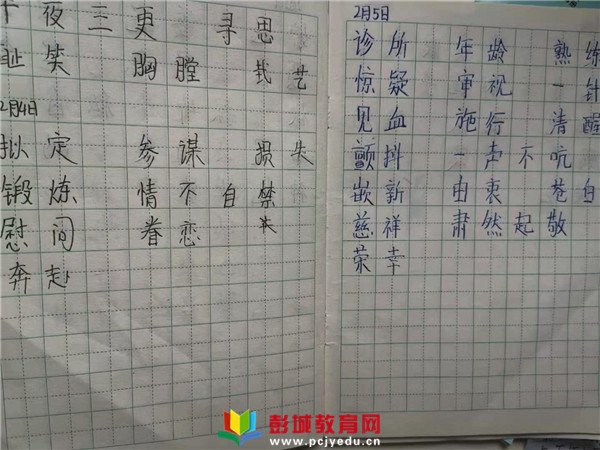 夜三更 寻思
耻笑 胸膛 找艺
2月4日
拟定 参谋 损失
锻炼 情不自禁
慰问 眷恋
奔赴
2月5日
诊所 年龄 熟练
惊疑 审视 一针
见血 施行 清醒
颤抖 一声不吭
崭新 由衷 苍白
慈祥 肃然起敬
荣幸
彭城教育网
www.pcjyedu.cn